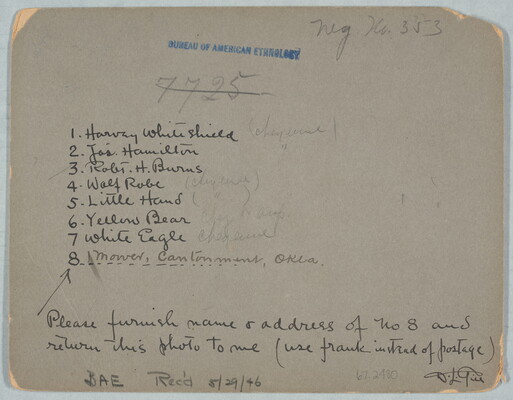 Neg No. 353
BUREAU OF AMERICAN ETHNOLOGY
7725
1. Harvey Whiteshield (Cheyenne)
2. Jos. Hamilton "
3. Robt. H. Burns
4. Wolf Robe (Cheyenne)
5. Little Hand (
6. Yellow Bear
7 White Eagle Cheyenne
8 Mower, Cantonment, Okla.
Please furnish name & address of No 8 and
return this photo to me (use frank instead of postage)
D L Gill
BAE Rec'd 5/29/46